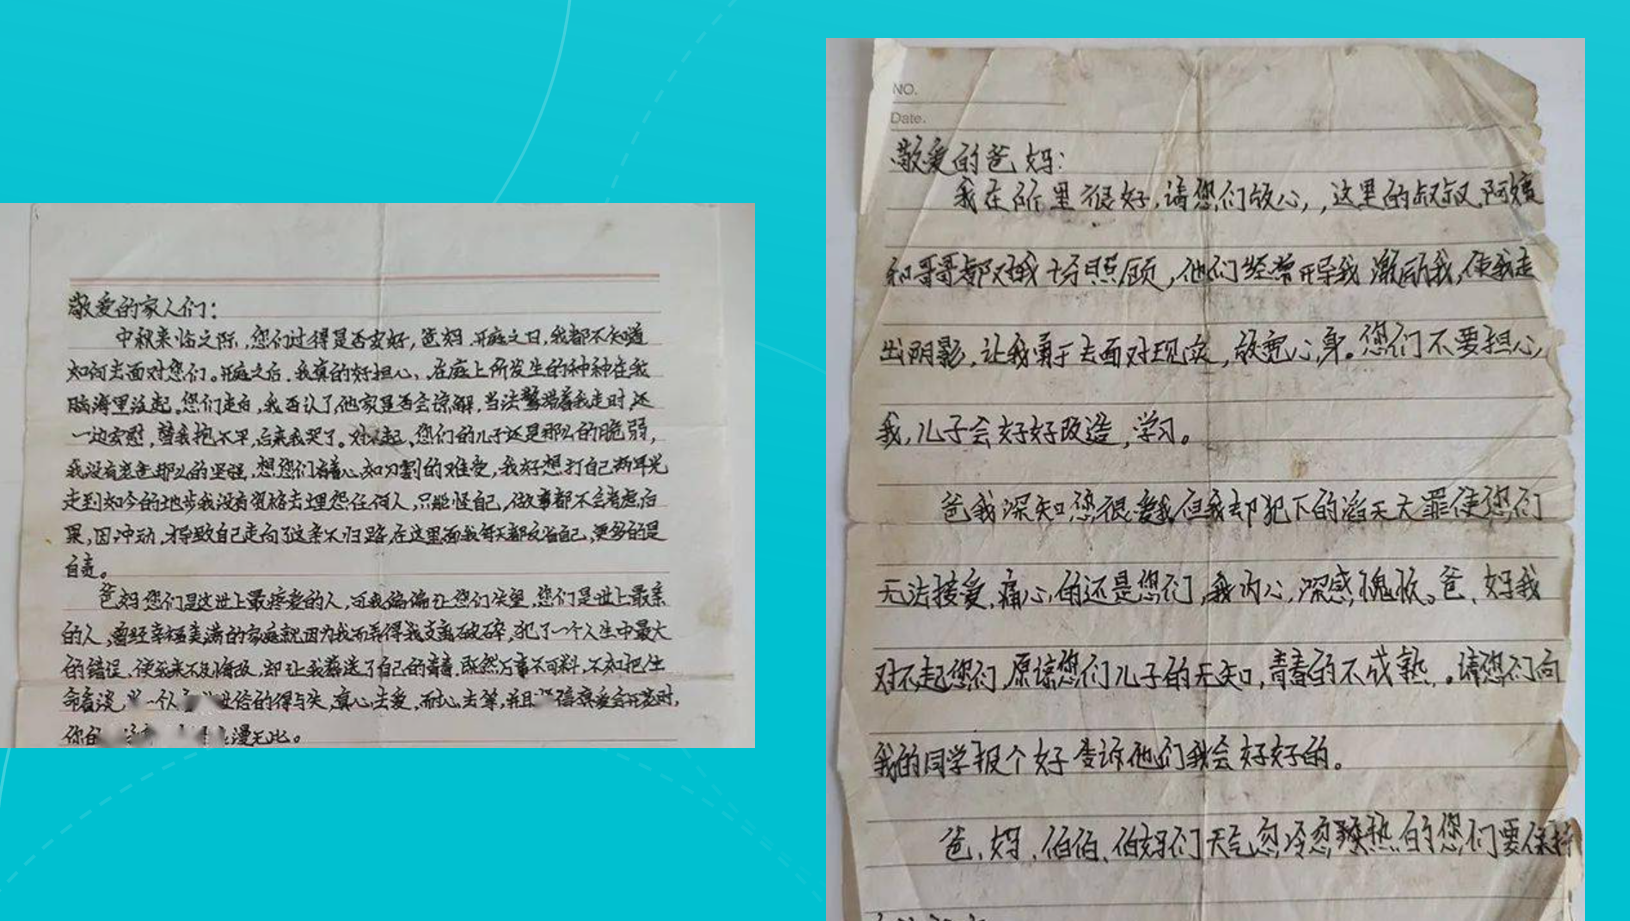 敬爱的家人们：
中秋来临之际，您们过得是否安好，爸妈.开庭之日，我都不知道
如何去面对您们。开庭之后.我真的好担心、在庭上所发生的种种在我
脑海里泛起。您们走后，我否认了他家是否会谅解，当法警带着我走时，还
一边安慰，替我抱不平，后来我哭了。对不起、您们的儿子还是那么的脆弱，
我没有老爸那么的坚强，想您们看着心如刀割的难受，我好想打自己两耳光
走到如今的地步我没有资格去埋怨任何人，只能怪自己，做事都不会考虑后
果，因冲动，才导致自己走向了这条不归路，在这里面我每天都反省自己，更多的是
自责。
爸妈您们是这世上最疼爱的人，可我偏偏让您们失望，您们是世上最亲
的人，曾经幸福美满的家庭就因为我而弄得支离破碎，犯了一个人生中最大
的错误，使我来不及悔改，却让我葬送了自己的青春.既然万事不可料，不如把生
命看淡，一个人 的得与失，真心去爱，而心去算，并且 开花时，
你的 漫无比。
NO.
Date.
敬爱的爸妈：
我在所里很好，请您们放心，，这里的叔叔，阿姨
和哥哥都对我十分照顾，他们经常开导我激励我，使我走
出阴影，让我勇于去面对现实，放宽心身。您们不要担心，
我，儿子会好好改造，学习。
爸我深知您很爱我，但我却犯下的滔天大罪使您们
无法接受，痛心的还是您们，我内心深感愧疚。爸、妈我
对不起您们，原谅您们儿子的无知，青春的不成熟。请您们向
我的同学报个好告诉他们我会好好的。
爸、妈、伯伯、伯妈们天气忽冷忽热的您们要保持